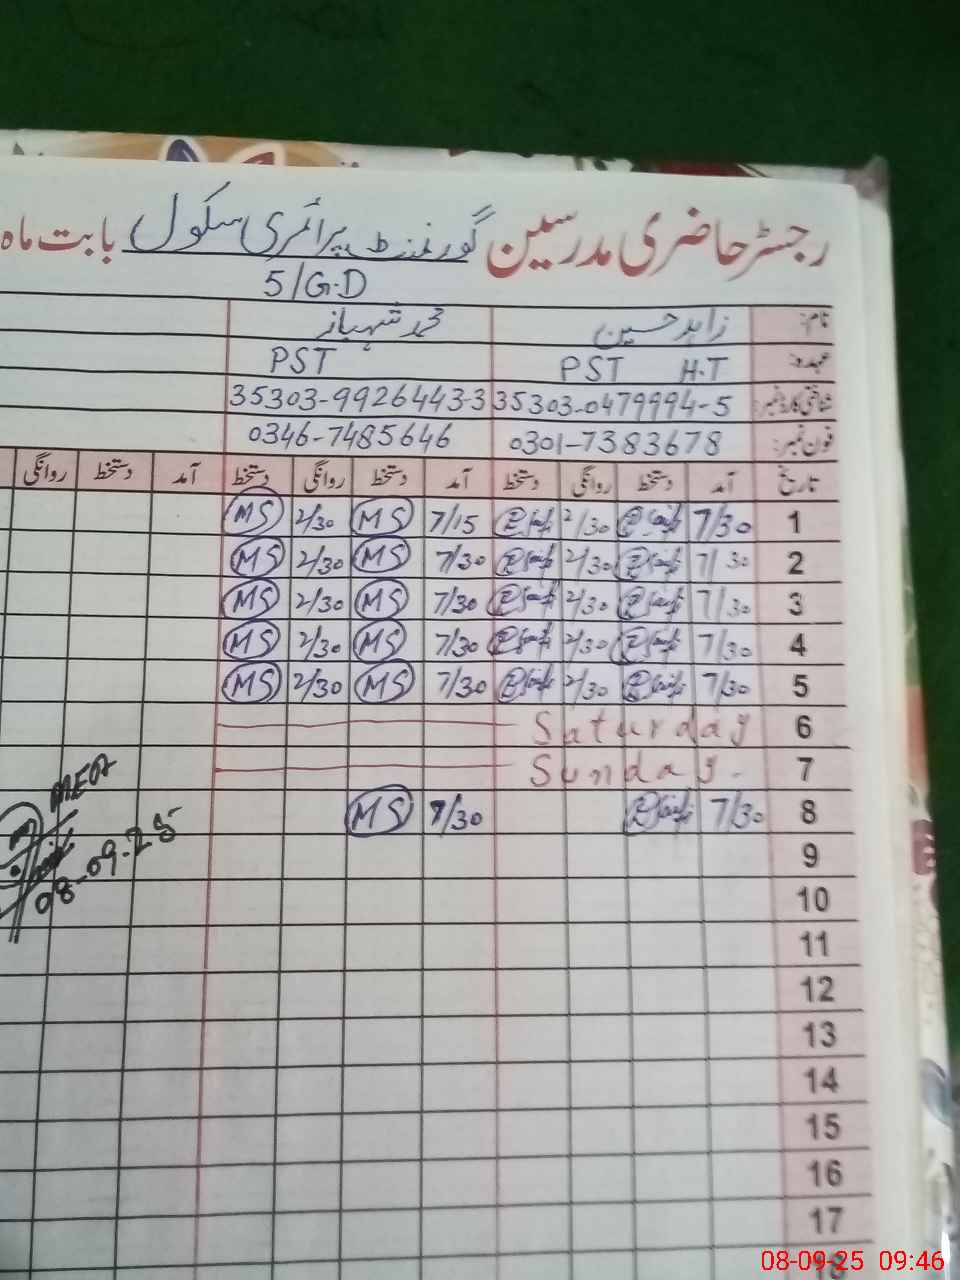 رجسٹر حاضری مدرسین گورنمنٹ پرائمری سکول بابت ماہ
5/G.D
نام: زاہد حسین محمد شہباز
عہدہ: PST H.T PST
شناختی کارڈ نمبر: 35303-0479994-5 35303-9926443-3
فون نمبر: 0301-7383678 0346-7485646
تاریخ آمد دستخط روانگی دستخط آمد دستخط روانگی دستخط آمد دستخط روانگی
1 7/30 2/30 7/15 MS 2/30 MS
2 7/30 2/30 7/30 MS 2/30 MS
3 7/30 2/30 7/30 MS 2/30 MS
4 7/30 2/30 7/30 MS 2/30 MS
5 7/30 2/30 7/30 MS 2/30 MS
6 Saturday
7 Sunday.
8 7/30 7/30 MS
MEA
08-09-25
9
10
11
12
13
14
15
16
17
18
08-09-25 09:46